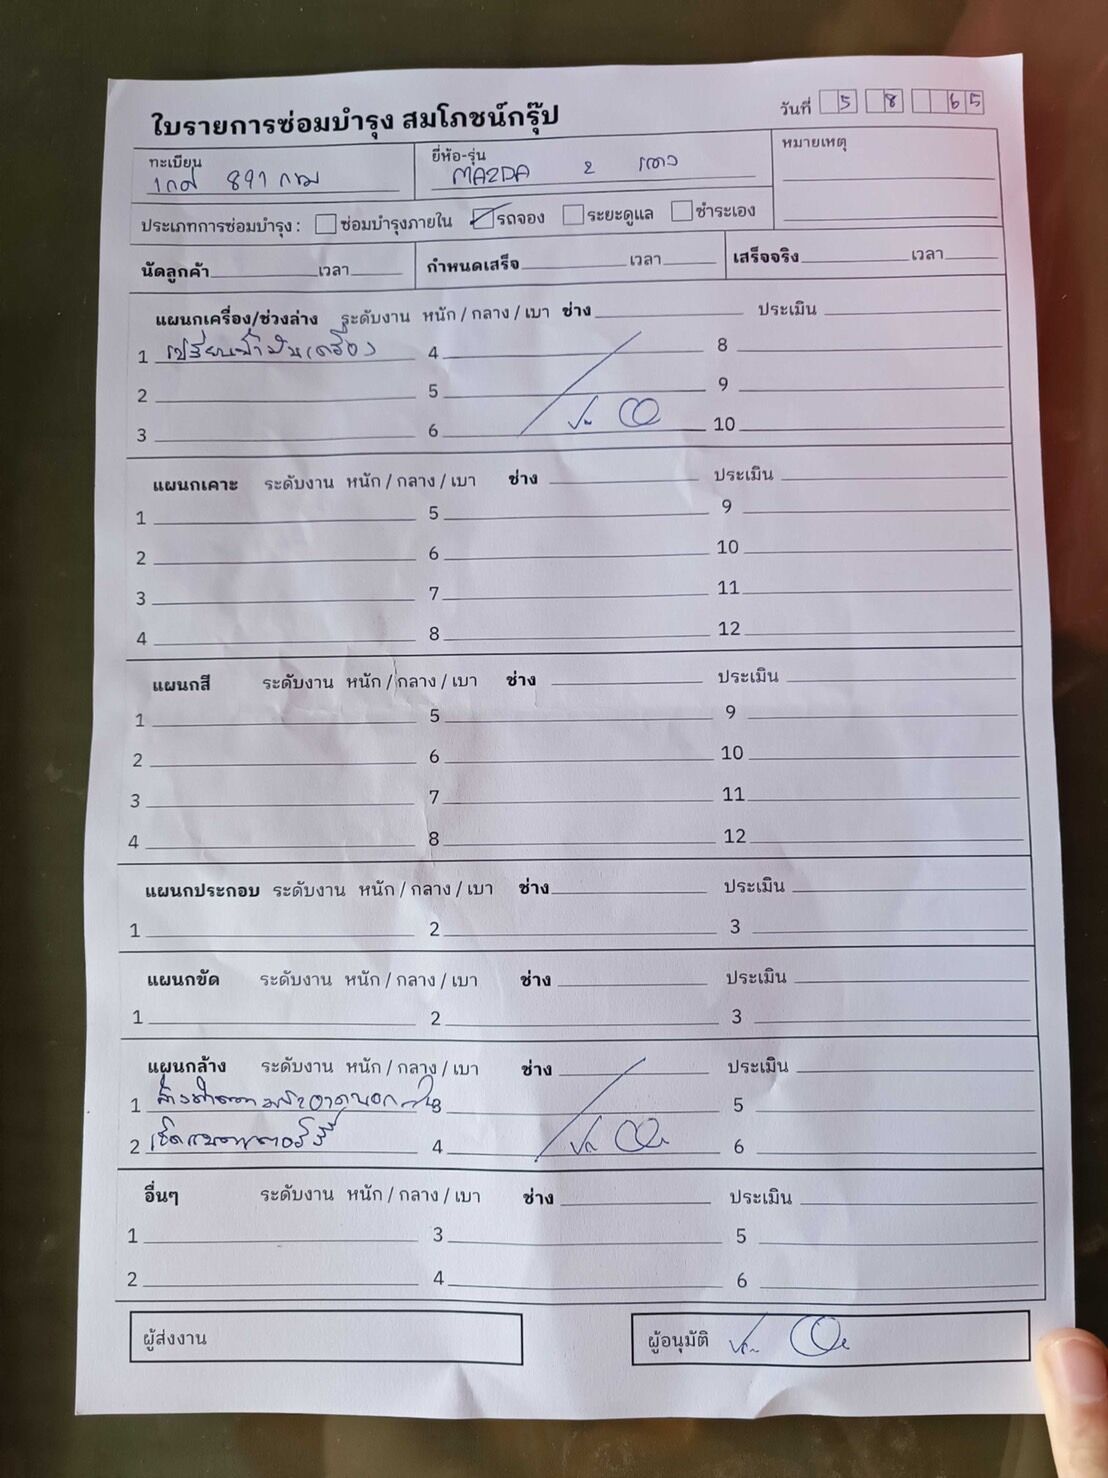 ใบรายการซ่อมบำรุง สมโภชน์กรุ๊ป
วันที่ 5 8 65
ทะเบียน
891 กทม
ยี่ห้อ-รุ่น
MAZDA 2
หมายเหตุ
ประเภทการซ่อมบำรุง : ซ่อมบำรุงภายใน รถจอง ระยะดูแล ชำระเอง
นัดลูกค้า เวลา กำหนดเสร็จ เวลา เสร็จจริง เวลา
แผนกเครื่อง/ช่วงล่าง ระดับงาน หนัก / กลาง / เบา ช่าง ประเมิน
1 เปลี่ยนน้ำมันเครื่อง 4 8
2 5 9
3 6 10
แผนกเคาะ ระดับงาน หนัก / กลาง / เบา ช่าง ประเมิน
1 5 9
2 6 10
3 7 11
4 8 12
แผนกสี ระดับงาน หนัก / กลาง / เบา ช่าง ประเมิน
1 5 9
2 6 10
3 7 11
4 8 12
แผนกประกอบ ระดับงาน หนัก / กลาง / เบา ช่าง ประเมิน
1 2 3
แผนกขัด ระดับงาน หนัก / กลาง / เบา ช่าง ประเมิน
1 2 3
แผนกล้าง ระดับงาน หนัก / กลาง / เบา ช่าง ประเมิน
1 ล้างทำความสะอาดนอกใน 3 5
2 เช็คแบตเตอรี่ 4 6
อื่นๆ ระดับงาน หนัก / กลาง / เบา ช่าง ประเมิน
1 3 5
2 4 6
ผู้ส่งงาน ผู้อนุมัติ